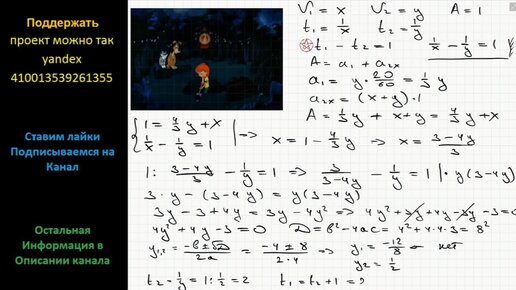 Поддержать
проект можно так
yandex
410013539261355
Ставим лайки
Подписываемся на
Канал
Остальная
Информация в
Описании канала
V₁ = x V₂ = y A = 1
t₁ = 1/x t₂ = 1/y
t₁ - t₂ = 1 1/x - 1/y = 1
A = a₁ + a₂ₓ
a₁ = y · 20/60 = 1/3 y
a₂ₓ = (x+y) · 1
A = 1/3 y + x + y = 4/3 y + x
{ 1 = 4/3 y + x
1/x - 1/y = 1 | => x = 1 - 4/3 y => x = (3-4y)/3
1 : (3-4y)/3 - 1/y = 1 => 3/(3-4y) - 1/y = 1 | · y(3-4y)
3 · y - (3-4y) = y(3-4y)
3y - 3 + 4y = 3y - 4y² => 4y² + 3y + 4y - 3y - 3 = 0
4y² + 4y - 3 = 0 D = b² - 4ac = 4² + 4·4·3 = 8²
y₁,₂ = (-b ± √D)/2a = (-4 ± 8)/(2·4) => y₁ = -12/8 - нет
y₂ = 1/2
t₂ = 1/y = 1 : 1/2 = 2 t₁ = t₂ + 1 =